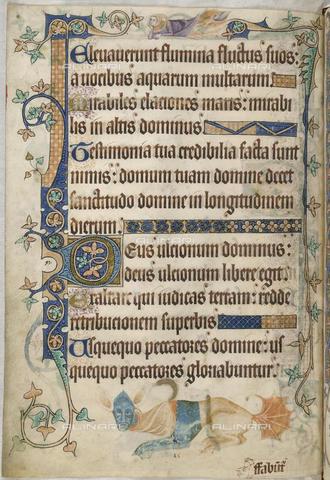 Eleuauerunt flumina fluctus suos:
a uocibus aquarum multarum.
Mirabiles elaciones maris: mirabi
lis in altis dominus.
Testimonia tua credibilia facta sunt
nimis: domum tuam domine decet
sanctitudo domine in longitudinem
dierum.
Deus ulcionum dominus:
deus ulcionum libere egit.
Exaltare qui iudicas terram: redde
retribucionem superbis
Usquequo peccatores domine: us
quequo peccatores gloriabuntur.
ALINARI
ALINARI
ALINARI
ALINARI